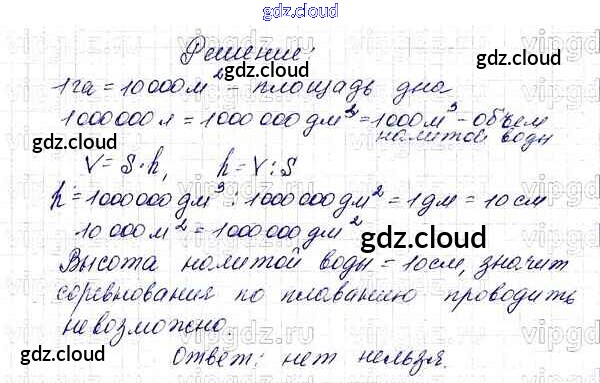 gdz.cloud
Решение:
gdz.cloud
1га = 10000м² - площадь дна
1000000л = 1000000дм³ = 1000м³ - объем
налитой воды
V = S·h, h = V : S
h = 1000000дм³ : 1000000дм² = 1дм = 10см
10000м² = 1000000дм²
gdz.cloud
Высота налитой воды = 10см, значит
соревнования по плаванию проводить
невозможно.
gdz.cloud
Ответ: нет нельзя.
gdz.cloud